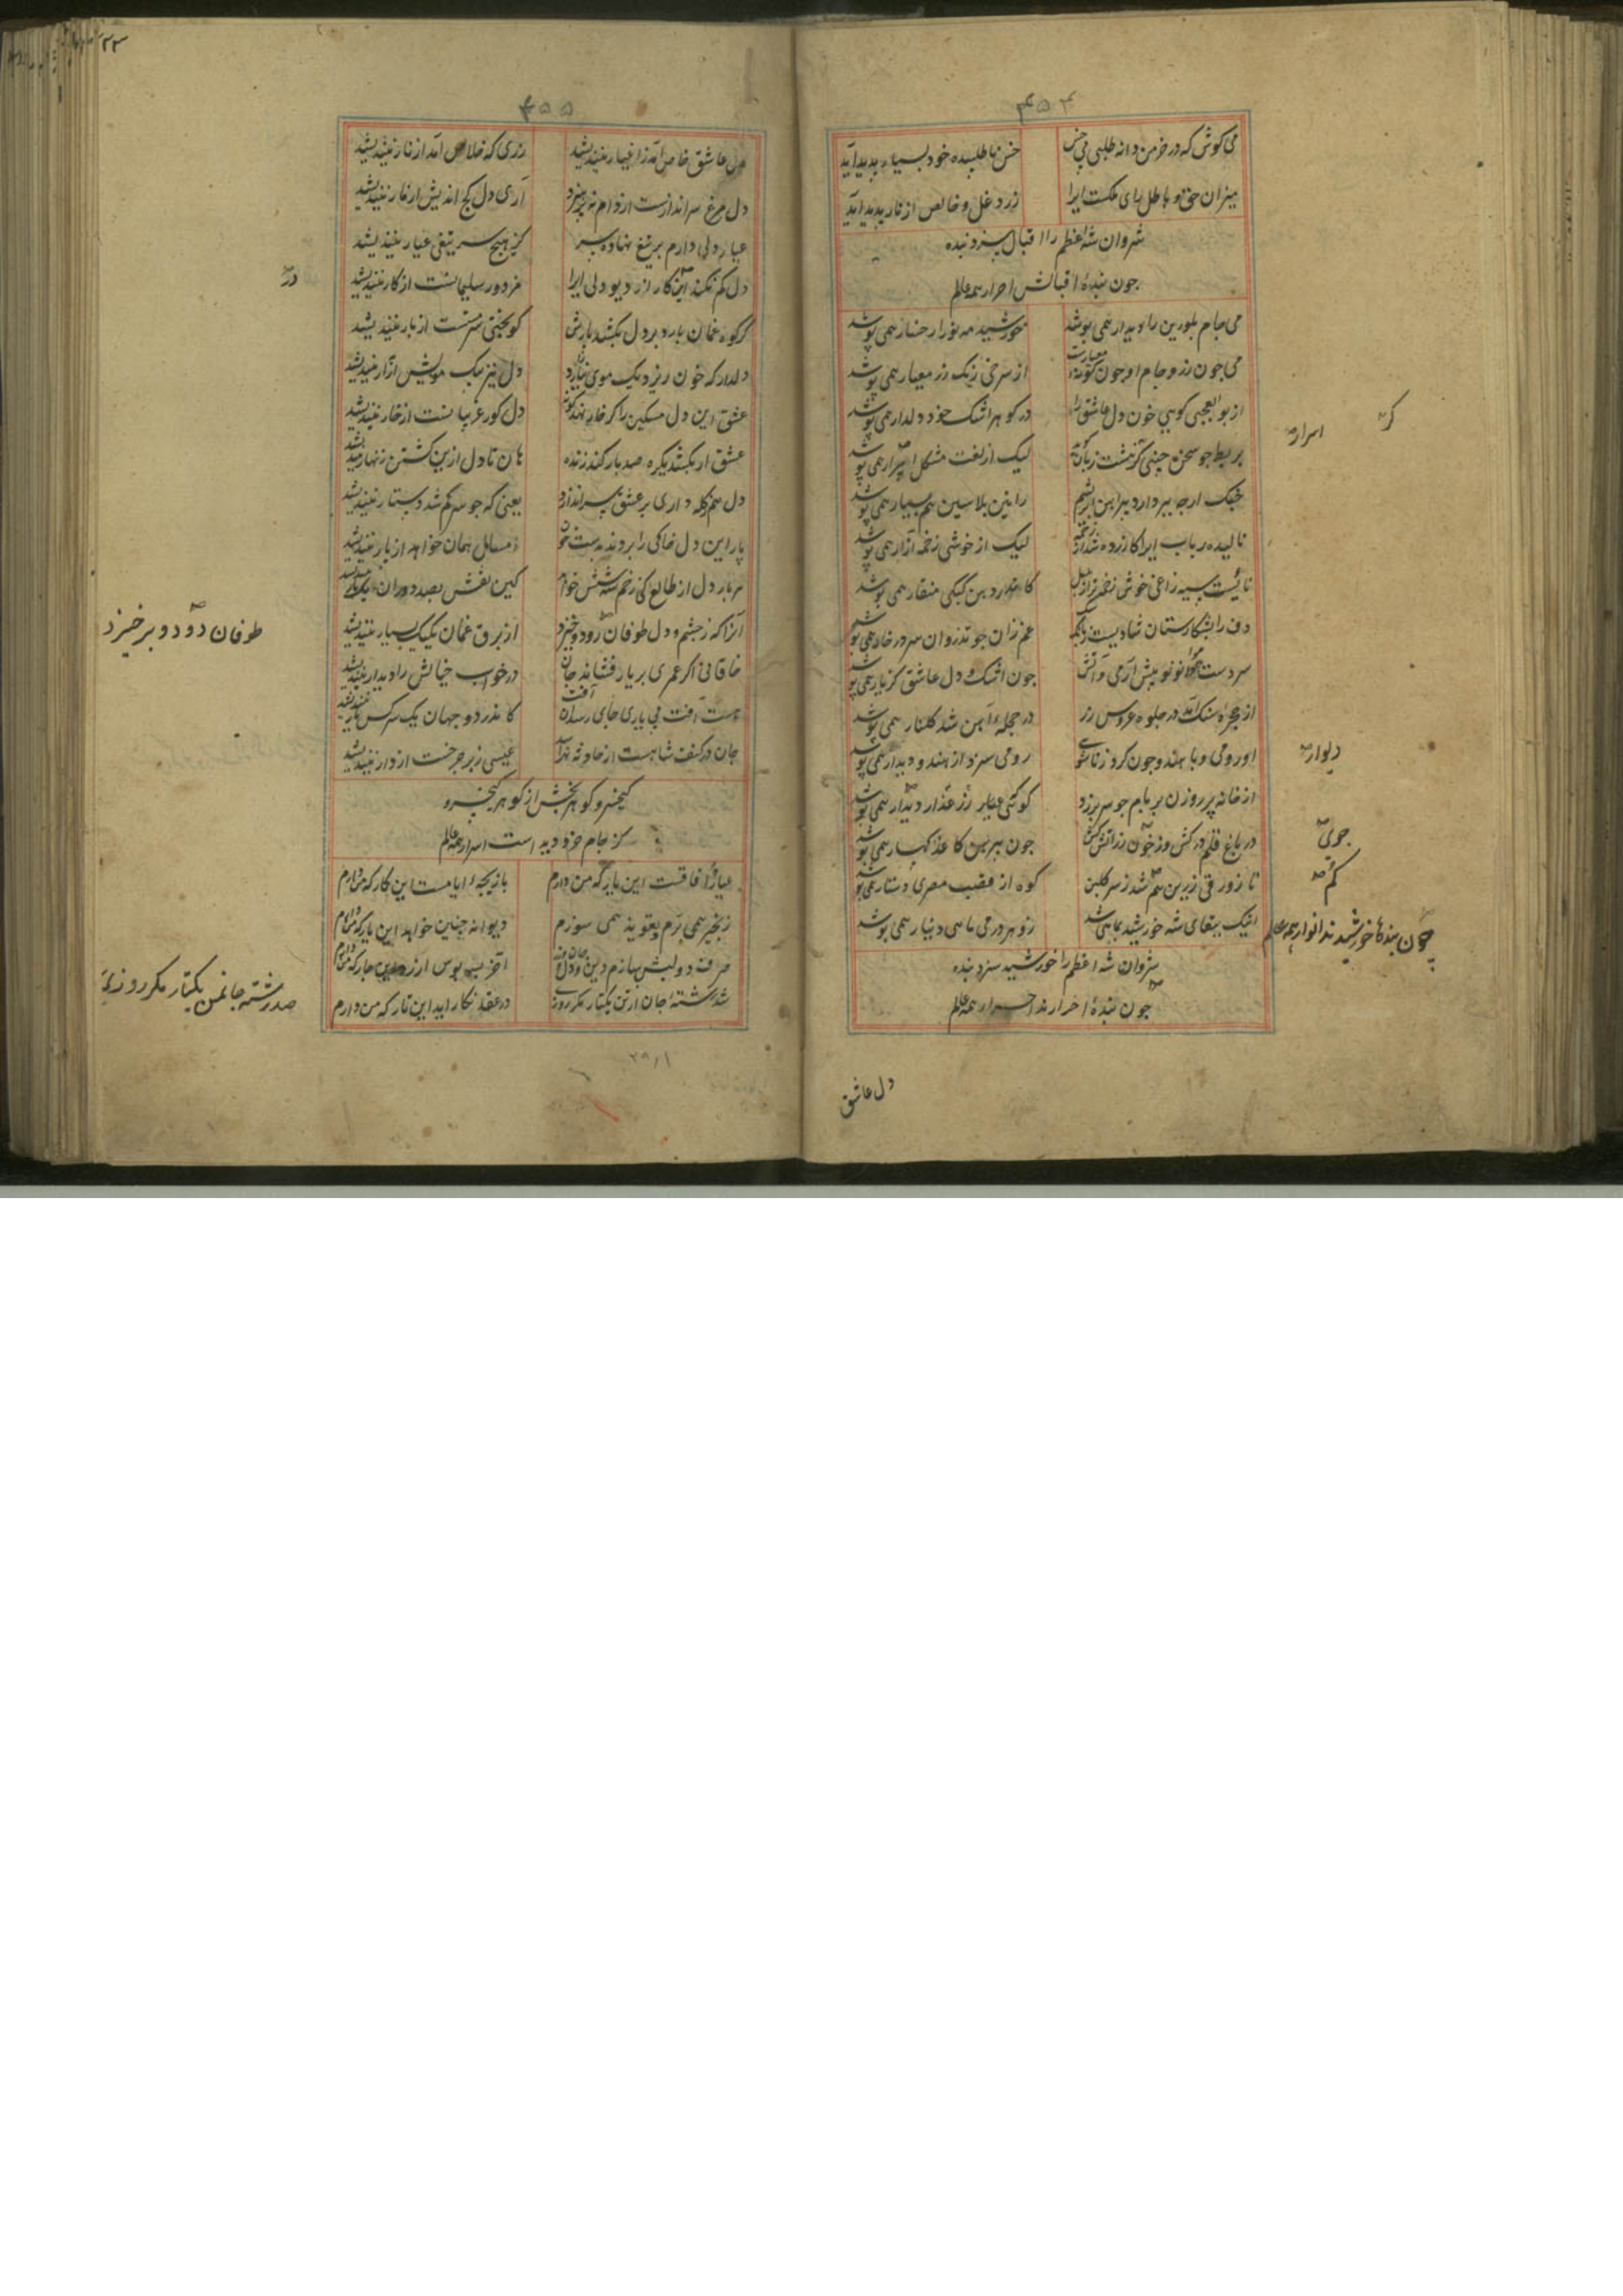 ۴۵۴
می کوش که در خرمن دانه طلبی بی خس
خس نا طلبیده خود بسیار پدید آید
میزان حق و باطل رای ملکست ایرا
زر دغل و خالص از نار پدید آید
شروان شه اعظم را اقبال سزد بنده
جون بنده اقبالش احرار همه عالم
می جام بلورین را دیدار همی پوشد
خورشید مه نو را رخسار همی پوشد
می جون زر و جام او جون
از سرخی رنک زر معیار همی پوشد
از بوالعجبی کویی خون دل عاشق را
در کوهر اشک خود دلدار همی پوشد
بربط جو سخن چینی کز هشت زبان
لیک از لغت مشکل اسرار همی پوشد
جنک ارجه ببر دارد پیراهن ابریشم
رانین پلاسین هم بسیار همی پوشد
نالیده رباب ایرا کازرده شد از زخمه
لیک از خوشی زخمه آزار همی پوشد
نائیست سیه زاغی خوش زخمه تر از بلبل
کاندر دهن کبکی منقار همی پوشد
دف را بشکارستان شادیست
غم زان جو تذروان سر در خار همی پوشد
سردست هوا نونو پیش آر می و آتش
جون اشک و دل عاشق کز یار همی پوشد
از حجره سنک آمد در جلوه عروس رز
در حجله آهن شد کلنار همی پوشد
او رومی و با هندو جون کرد زناشوی
رومی سزد از هندو دیدار همی پوشد
از خانه پر روزن بر بام جو سر برزد
کوئی عیار زر عذار دیدار همی پوشد
در باغ قلم درکش وز خون رز آتش کش
جون پیرهن کاغذ کهسار همی پوشد
تا زورقی زرین هم شد ز سر کلبن
کوه از قصب مصری دستار همی پوشد
اینک بتقای شه خورشید بماهی شد
زو هر درمی ماهی دینار همی پوشد
شروان شه اعظم را خورشید سزد بنده
جون بنده احرارند احرار همه عالم
کر
اسرار
دیوار
جوی
کم
جون بندها خورشیدند انوار همه عالم
دل عاشق
۴۵۵
دل عاشق خاص آمد ز اغیار نیندیشد
زری که خلاص آمد از نار نیندیشد
دل مرغ سراندازست از دام نپرهیزد
آری دل کج اندیش از خار نیندیشد
عیار دلی دارم بر تیغ نهاده سر
کز هیچ سر تیغی عیار نیندیشد
دل کم نکند این کار از دیو دلی ایرا
مزدور سلیمانست از کار نیندیشد
کر کوه غمان بارد بر دل بکشد بارش
کو بختی سرمست از بار نیندیشد
دلدار که خون ریزد یک موی نیازارد
دل نیز بیک مویش از آزار نیندیشد
عشق این دل مسکین را کر خار نهد
دل کور غریبانست از خار نیندیشد
عشق ار بکشد یکره صد بار کند زنده
هان تا دل ازین کشتن زنهار نیندیشد
دل هم کله داری بر عشق سراندازد
یعنی که جو سر کم شد دستار نیندیشد
پار این دل خاکی را بردند بدست خون
امسال همان خواهد از پار نیندیشد
هر بار دل از طالع کی زخم سه شش خواهد
کین نقش بصد دوران یکبار نیندیشد
آنرا که ز چشم و دل طوفان دو رود خیزد
از برق غمان یکیک بسیار نیندیشد
خاقانی اکر عمری بر یار فشاند جان
در خواب خیالش را دیدار نیندیشد
هست آفت بی یاری جای رساند آفت
کاندر دو جهان یک سر کس یار نیندیشد
جان در کنف شاهست از حادثه نهراسد
عیسی زبر جرخست از دار نیندیشد
کیخسرو کوهربخش از کوهر کیخسرو
کز جام خرد دیدست اسرار همه عالم
عیار آفاقست این یار که من دارم
بازیجه ایامست این کار که من دارم
زنجیر همی برم و تعویذ همی سوزم
دیوانه چنین خواهد این یار که من دارم
صرف دو لبش سازم دین و دل و جان
آخر ببوس ارزد این جار که من دارم
شد رشته جان از تن یکتار مکر روزی
در عقد نکار آید این تار که من دارم
در
طوفان دو دو برخیزد
صد رشته جانمن یکتار مکر روزی
۲۹۸۱